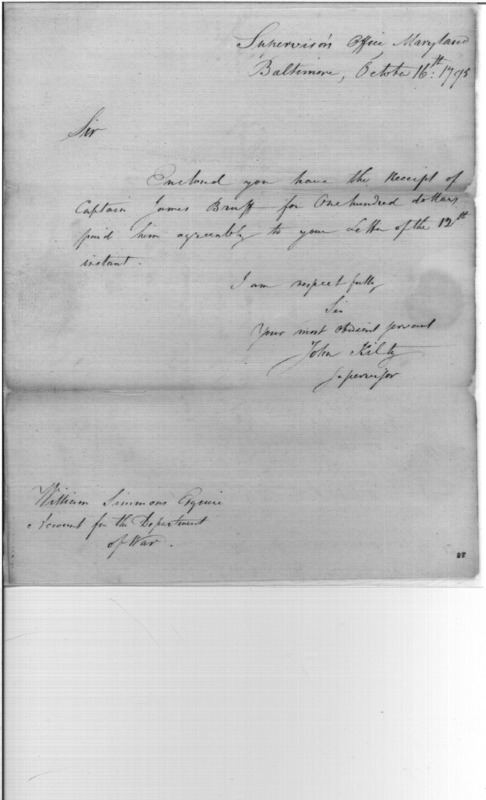 Supervisor's Office Maryland
Baltimore, October 16th: 1795
Sir
Enclosed you have the Receipt of
Captain James Bruff for One hundred dollars
paid him agreeably to your Letter of the 12th
instant.
I am respectfully
Sir
Your most obedient servant
John Kilty
Supervisor
William Simmons Esquire
Account for the Department
of War.